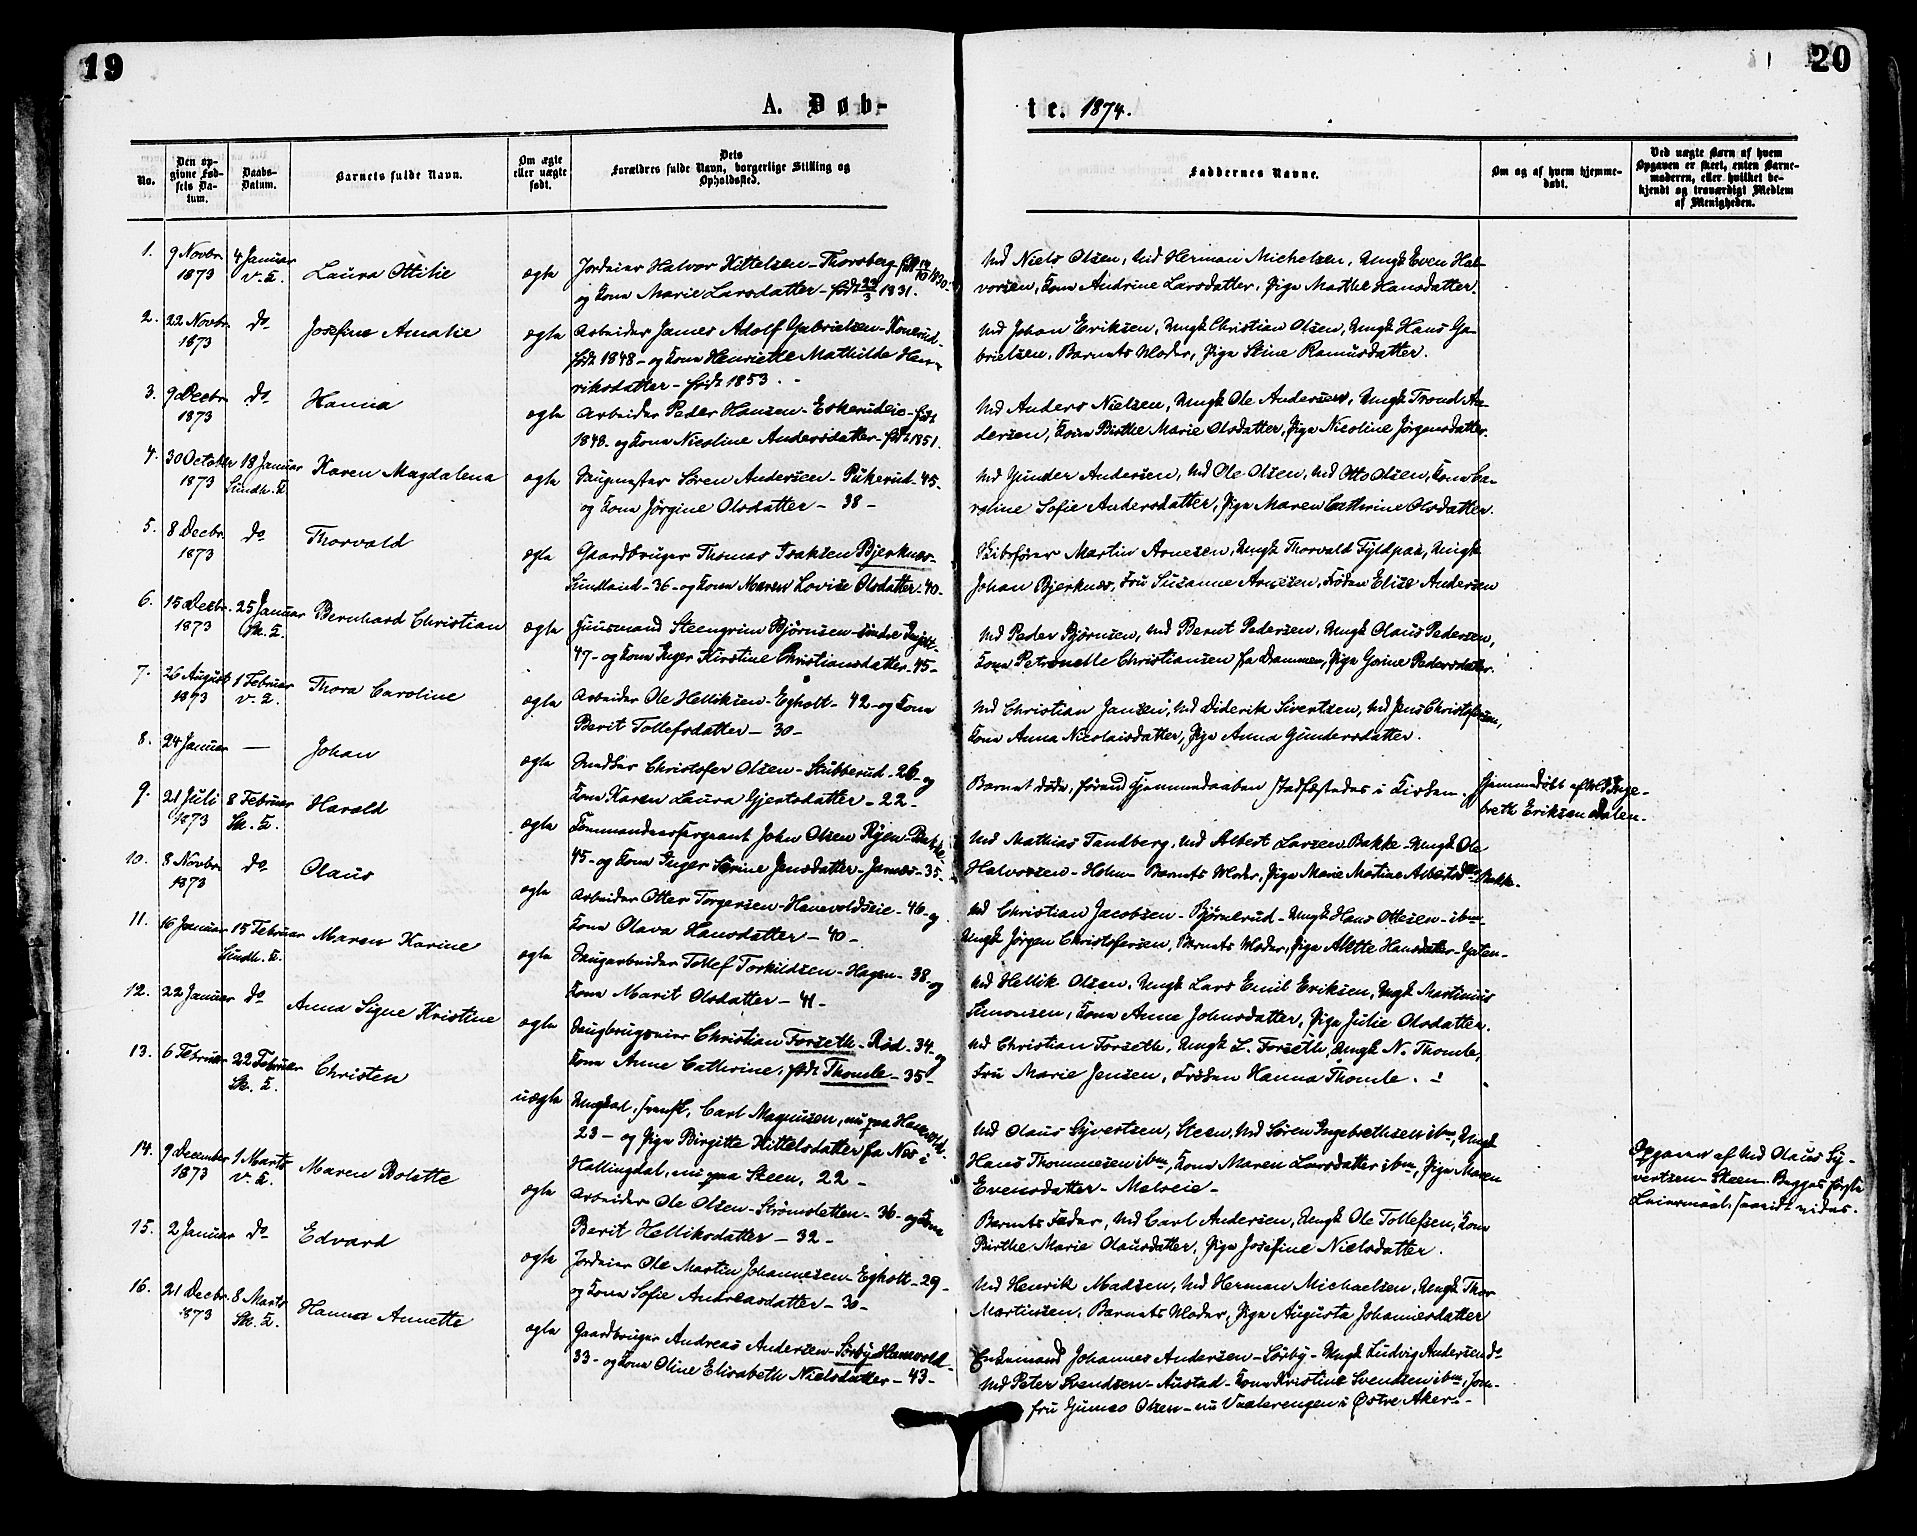 19
20
A. Døb-
te. 1874.
No.
Den op-
givne Fød-
sels Da-
tum.
Daabs-
Datum.
Barnets fulde Navn.
Om ægte
eller uægte
født.
Dets
Forældres fulde Navn, borgerlige Stilling og
Opholdssted.
Faddernes Navne.
Om og af hvem hjemme-
døbt.
Ved uægte Børn af hvem
Opgaven er skeet, enten Barne-
moderen, eller hvilket be-
kjendt og troværdigt Medlem
af Menigheden.
1.
9 Novbr
1873
4 Januar
V. K.
Laura Ottilie
ægte
Jordeier Halvor Kittelsen - Thorsberg født 14/10 1830
og Kone Marie Larsdatter - født 29/3 1831.
Md Niels Olsen, Md Herman Michelsen, Ungk Even Hal-
vorsen, Kone Andrine Larsdatter, Pige Marthe Hansdatter.
2.
22 Novbr.
1873
do
Josefine Amalie
ægte
Arbeider James Adolf Gabrielsen - Konerud -
født 1848 - og Kone Henriette Mathilde Hen-
riksdatter - født 1853. -
Md Johan Eriksen, Ungk Christian Olsen, Ungk Hans Ga-
brielsen, Barnets Moder, Pige Stine Ramusdatter.
3.
9 Decbr
1873
do
Hanna
ægte
Arbeider Peder Hansen - Eskerudeie - født
1848. og Kone Nicoline Andersdatter - født 1851.
Md Anders Nielsen, Ungk Ole Andersen, Ungk Trond An-
dersen, Kone Birthe Marie Olsdatter, Pige Nicoline Jørgensdatter.
4.
30 October
1873
18 Januar
Sundh. K
Karen Magdalena
ægte
Saugmester Søren Andersen - Pukerud - 45 -
og Kone Jørgine Olsdatter - 38 -
Md Gunder Andersen, Md Ole Olsen, Md Otto Olsen, Kone Ca-
roline Sofie Andersdatter, Pige Maren Cathrine Olsdatter.
5.
8 Decbr
1873
do
Thorvald
ægte
Gaardbruger Thomas Isaksen Bjerknes -
Sundland - 36 - og Kone Maren Lovise Olsdatter - 40 -
Skibsfører Martin Arnesen, Ungk Thorvald Fyldpaa, Ungk
Johan Bjerknes, Fru Susanne Arnesen, Frøken Elise Andersen
6.
15 Decbr.
1873
25 Januar
Sk. K.
Bernhard Christian
ægte
Huusmand Steengrim Bjørnsen - Søndre
47 - og Kone Inger Kirstine Christiansdatter - 45 -
Md Peder Bjørnsen, Md Bernt Pedersen, Ungk Olaus Pedersen,
Kone Petronelle Christiansen fra Drammen, Pige Gorine Pedersdatter.
7.
26 August
1873
1 Februar
V. K.
Thora Caroline
ægte
Arbeider Ole Helliksen - Egholt - 42 - og Kone
Berit Tollefsdatter - 30 -
Md Christian Jansen, Md Diderik Sivertsen, Md Jens Christofersen,
Kone Anna Nicolaisdatter, Pige Anna Gundersdatter.
8.
24 Januar
—
Johan
ægte
Snedker Christofer Olsen - Stubberud - 26 - og
Kone Karen Laura Gjertsdatter - 22 -
Barnet døde, førend Hjemmedaaben stadfæstedes i Kirken.
Hjemmedøbt af Md Inge-
breth Eriksen Dalen.
9.
21 Juli
1873
8 Februar
Sk. K.
Harald
ægte
Kommandeersergeant John Olsen Ryen - Bakke -
45 - og Kone Inger Sørine Jensdatter - Jarnes - 35 -
Md Mathias Tandberg, Md Albert Larsen Bakke - Ungk Ole
Halvorsen - Holm - Barnets Moder, Pige Marie Martine Albertsdtr - Bakke.
10.
8 Novbr.
1873
do
Olaus
ægte
Arbeider Otter Torgersen - Hanevoldseie - 46 - og
Kone Olava Hansdatter - 40 -
Md Christian Jacobsen - Bjørnerud - Ungk Hans Ottesen - ibm
Ungk Jørgen Christofersen, Barnets Moder, Pige Alette Hansdatter
11.
16 Januar
15 Februar
Sundh. K.
Maren Karine
ægte
Saugarbeider Tollef Torkildsen - Hagen - 38 - og
Kone Marit Olsdatter - 41 -
Md Hellik Olsen, Ungk Lars Emil Eriksen, Ungk Martinius
Simonsen, Kone Anne Johnsdatter, Pige Julie Olsdatter.
12.
22 Januar
do
Anna Signe Kristine
ægte
Saugbrugseier Christian Forseth - Rød - 34 - og
Kone Anne Cathrine, født Thomle - 35 -
Md Christian Forseth, Ungk L. Forseth, Ungk N. Thomle,
Fru Marie Jensen, Frøken Hanna Thomle.
13.
6 Februar
22 Februar
Sk. K.
Christen
uægte
Ungkarl, svensk, Carl Magnusen, nu paa Hanevold.
23 - og Pige Birgitte Kittelsdatter fra Nes i
Hallingdal, nu paa Skeen, 22 -
Md Olaus Syvertsen, Steen, Md Søren Ingebrethsen ibm, Ungk
Hans Thommesen ibm, Kone Maren Larsdatter ibm, Pige Maren
Evensdatter - Moloeie -
Opgaven af Md Olaus Sy-
vertsen - Skeen - Begges første
Leiermaal, saavidt vides.
14.
9 December
1873
1 Marts
V. K.
Maren Bolette
ægte
Arbeider Ole Olsen - Strømsletten - 36 - og Kone
Berit Helliksdatter - 32 -
Barnets Fader, Md Carl Andersen, Ungk Ole Tollefsen, Kone
Birthe Marie Olausdatter, Pige Josefine Nielsdatter.
15.
2 Januar
do
Edvard
ægte
Jordeier Ole Martin Johannesen - Egholt - 29 -
og Kone Sofie Andreasdatter - 30 -
Md Henrik Madsen, Md Herman Michaelsen, Ungk Thor
Martinsen, Barnets Moder, Pige Augusta Johannesdatter
16.
21 Decbr.
1873
8 Marts
Sk. K.
Hanna Annette
ægte
Gaardbruger Andreas Andersen - Sørby Hanevold -
33 - og Kone Oline Elisabeth Nielsdatter - 43 -
Enkemand Johannes Andersen - Sørby - Ungk Ludvig Andersen do
Md Peter Svendsen - Austad - Kone Kristine Svendsen ibm, Jom-
fru Gunes Olsen - nu Vaalerengen i Østre Aker. -